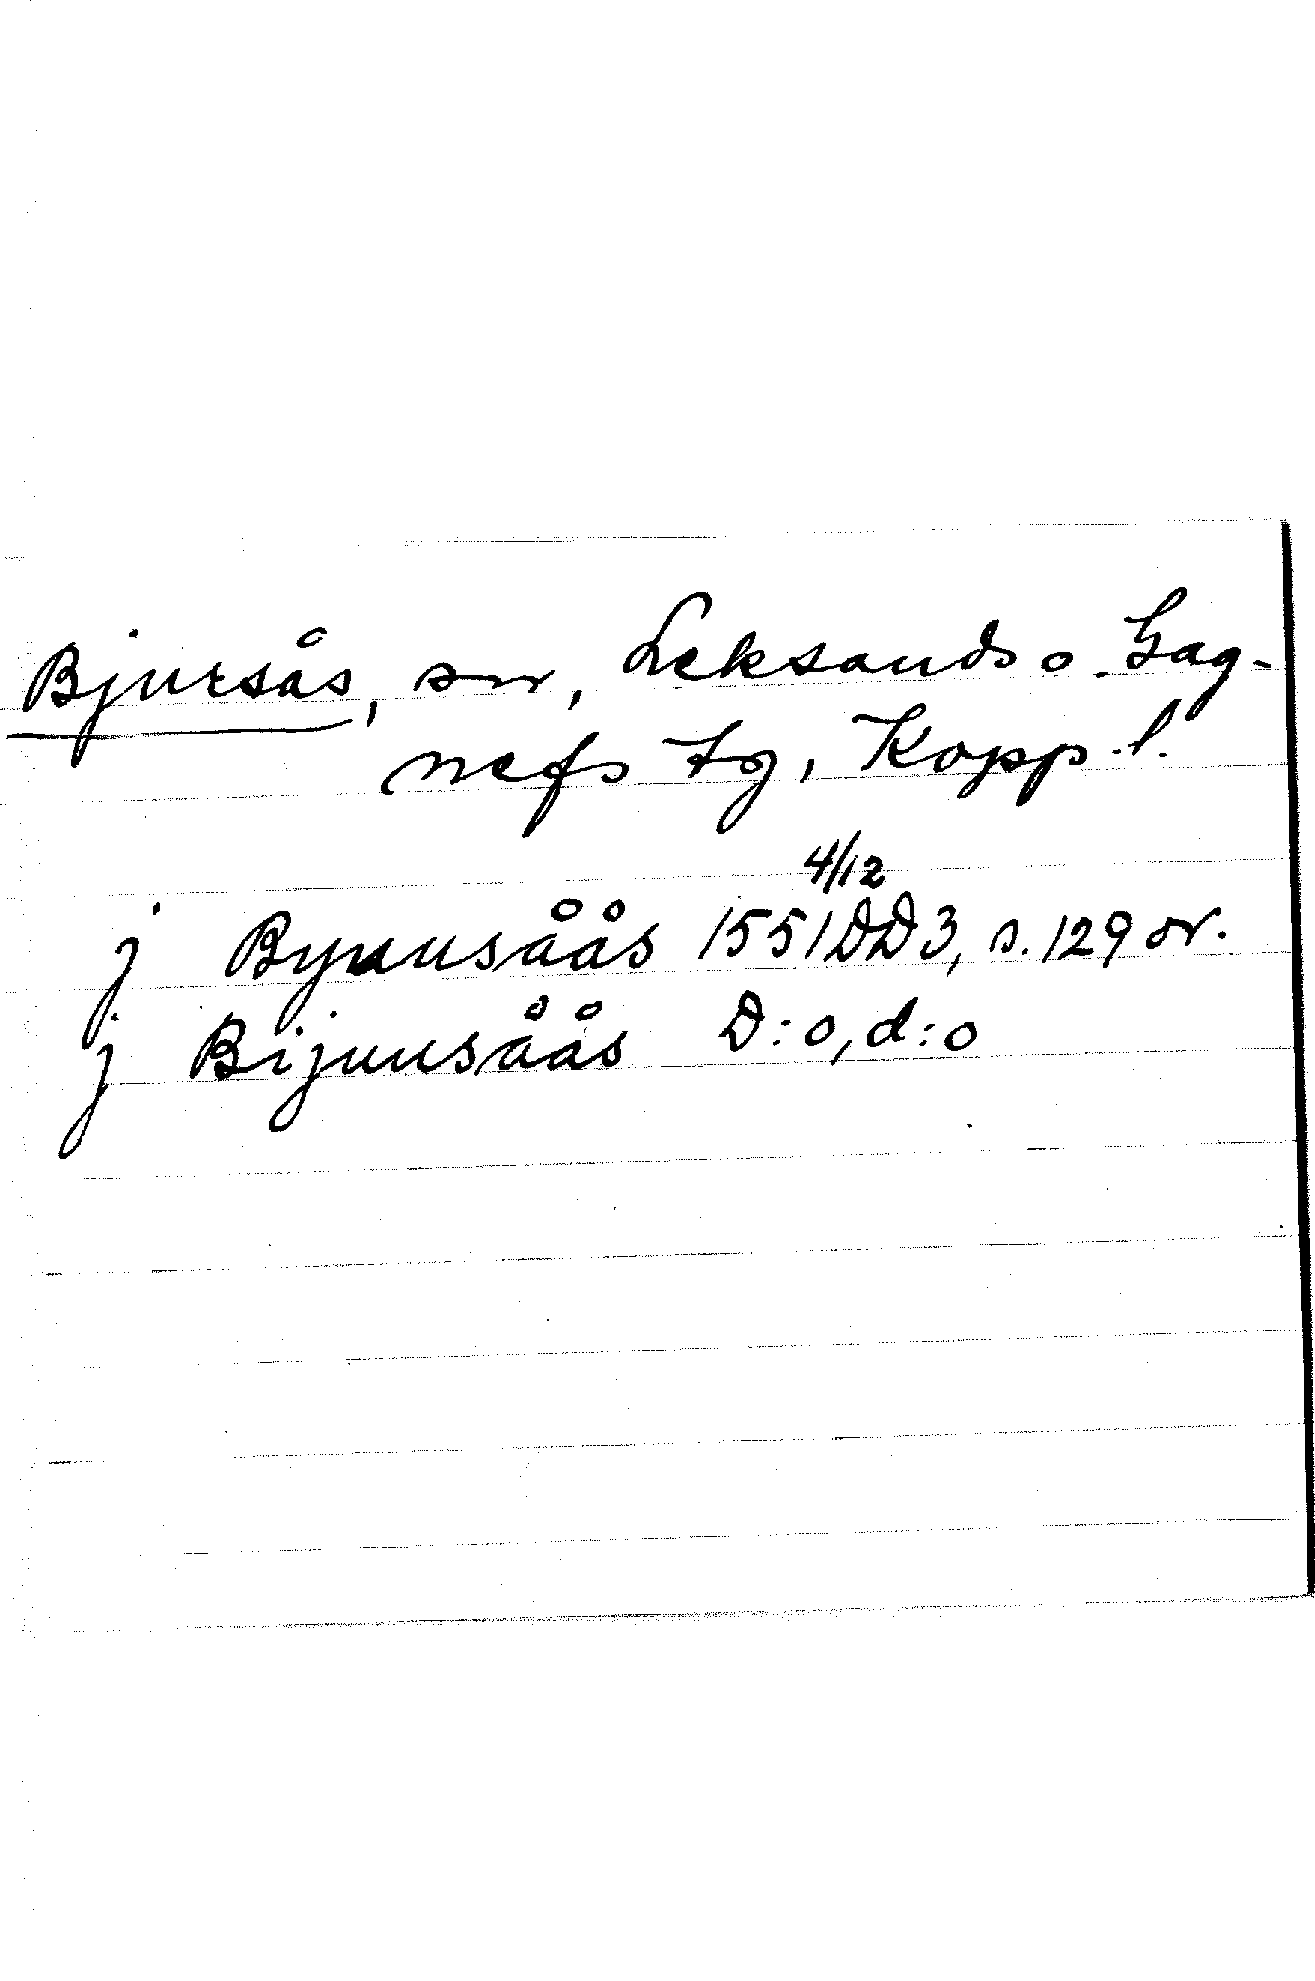 Bjursås, sn, Leksands o. Gag-
nefs tg, Kopp. l.
4/12
j Byuusåås 1551 DD3, s. 129 or.
j Bijuusåås D:o, d:o